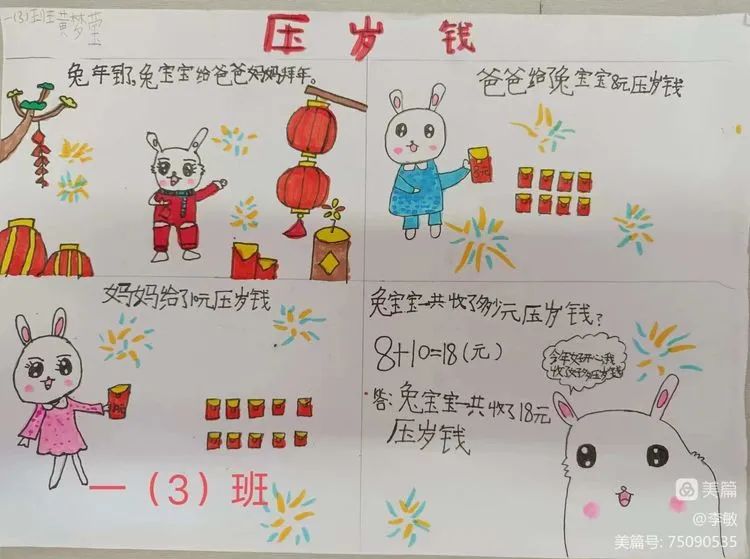 一(3)班黄梦莹
压岁钱
兔年到了,兔宝宝给爸爸妈妈拜年。
爸爸给兔宝宝8元压岁钱
8元
妈妈给了10元压岁钱
兔宝宝一共收了多少元压岁钱?
8+10=18(元)
答:兔宝宝一共收了18元
压岁钱
今年好开心,我
收了好多压岁钱
一(3)班
美篇
@李敏
美篇号: 75090535